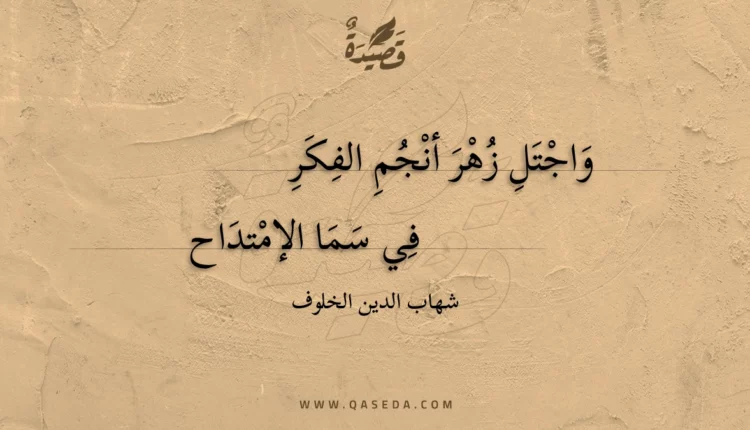 قَصِيدَةٌ
وَاجْتَلِ زُهْرَ أنْجُمِ الفِكَرِ
فِي سَمَا الإمْتدَاح
شهاب الدين الخلوف
WWW.QASEDA.COM